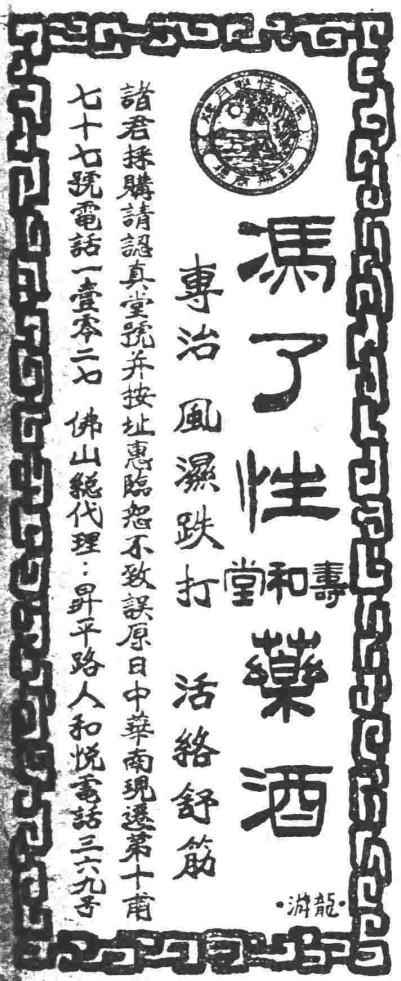 馮了性藥酒
壽和堂
龍游
專治風濕跌打 活絡舒筋
諸君採購請認真堂號并按址惠臨恕不致誤原日中華南現遷第十甫
七十七號電話一壹零二七 佛山總代理：昇平路人和悅電話三六九号